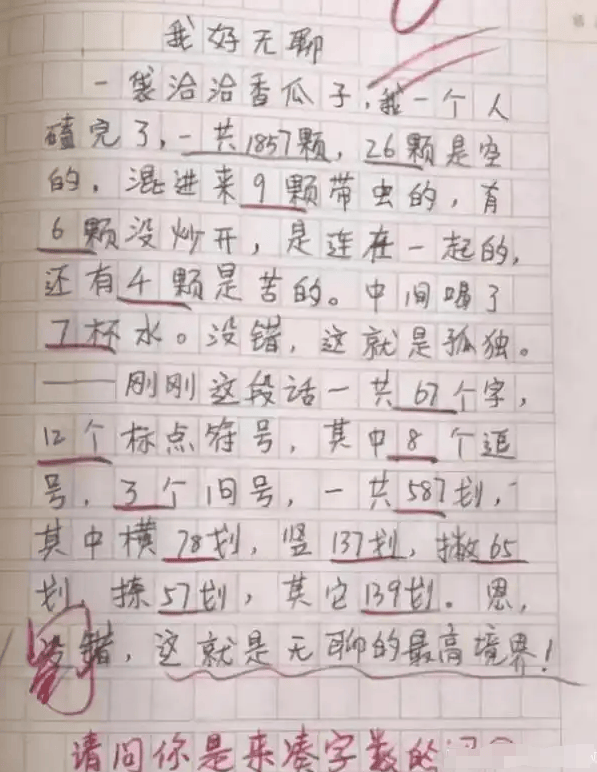 我好无聊
一袋洽洽香瓜子,我一个人
磕完了,一共1857颗,26颗是空
的,混进来9颗带虫的,有
6颗没炒开,是连在一起的,
还有4颗是苦的。中间喝了
7杯水。没错,这就是孤独。
——刚刚这段话一共67个字,
12个标点符号,其中8个逗
号,3个句号,一共587划,
其中横78划,竖137划,撇65
划,捺57划,其它139划。恩,
没错,这就是无聊的最高境界!
请问你是来凑字数的